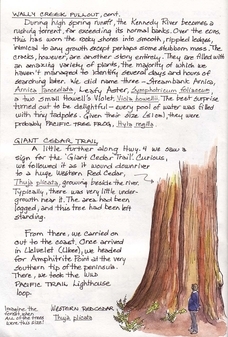 WALLY CREEK PULLOUT, cont.
During high spring runoff, the Kennedy River becomes a
rushing torrent, far exceeding its normal banks. Over the eons,
this has worn the rocky shores into smooth, rippled ledges,
inimical to any growth except perhaps some stubborn moss. The
cracks, however, are another story entirely. They are filled with
an amazing variety of plants, the majority of which we
haven't managed to identify several days and hours
of searching later. We did name three - Streambank Arnica,
Arnica lanceolata, Leafy Aster, Symphotricum foliaceum,
& two small Howell's Violet, Viola howellii. The best surprise
turned out to be delightful - every pool of water was filled
with tiny tadpoles. Given their size (≤1cm), they were
probably PACIFIC TREE FROG, Hyla regilla.
GIANT CEDAR TRAIL
A little further along Hwy. 4 we saw a
sign for the 'Giant Cedar Trail'. Curious,
we followed it as it wound downriver
to a huge Western Red Cedar,
Thuja plicata, growing beside the river.
Typically, there was very little under-
growth near it. The area had been
logged, and this tree had been left
standing.
From there, we carried on
out to the coast. Once arrived
in Ucluelet (Ukee), we headed
for Amphitrite Point at the very
southern tip of the peninsula.
There, we took the Wild
Pacific Trail Lighthouse
loop.
Imagine the
forest when
ALL of the trees
were this size!
WESTERN REDCEDAR
Thuja plicata